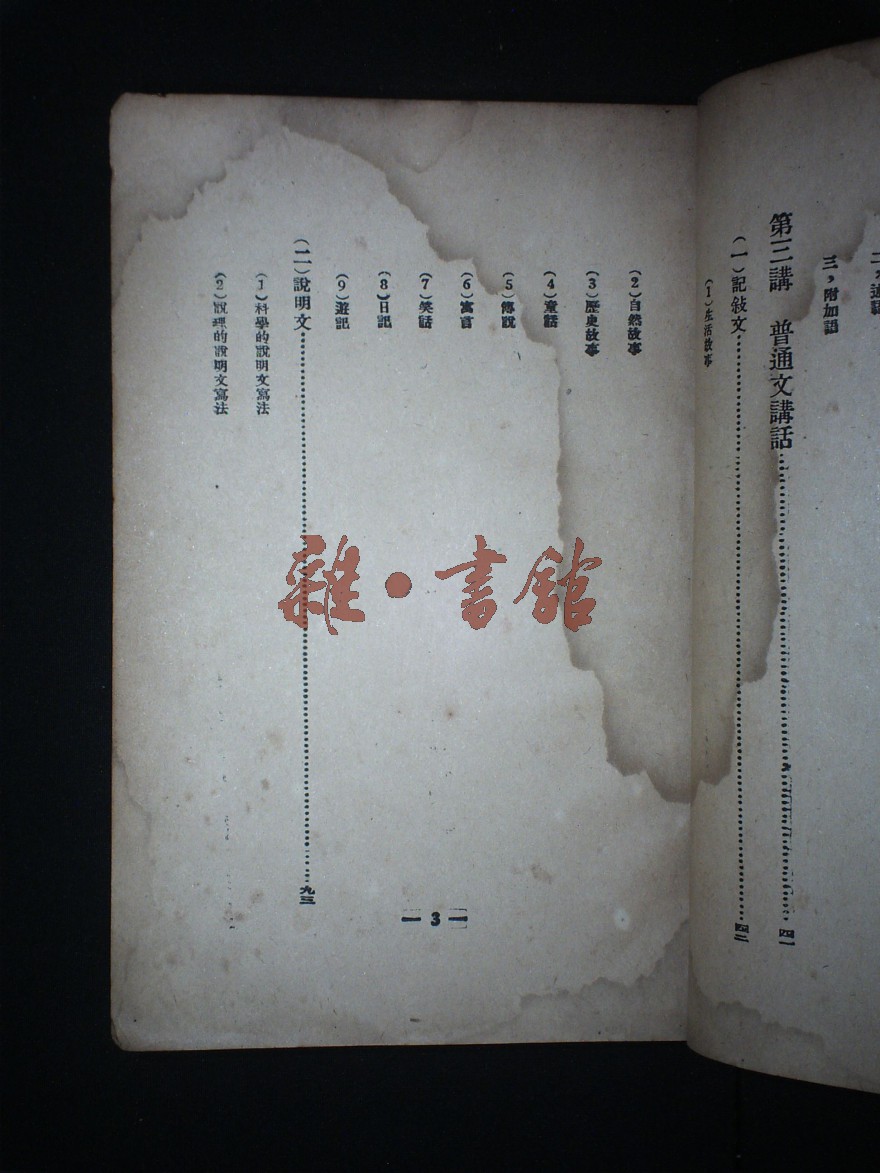 二，述語
三，附加語
第三講　普通文講話……四一
（一）記敍文……四二
（1）生活故事
（2）自然故事
（3）歷史故事
（4）童話
（5）傳說
（6）寓言
（7）笑話
（8）日記
（9）遊記
（二）說明文……九三
（1）科學的說明文寫法
（2）說理的說明文寫法
3
雜·書館